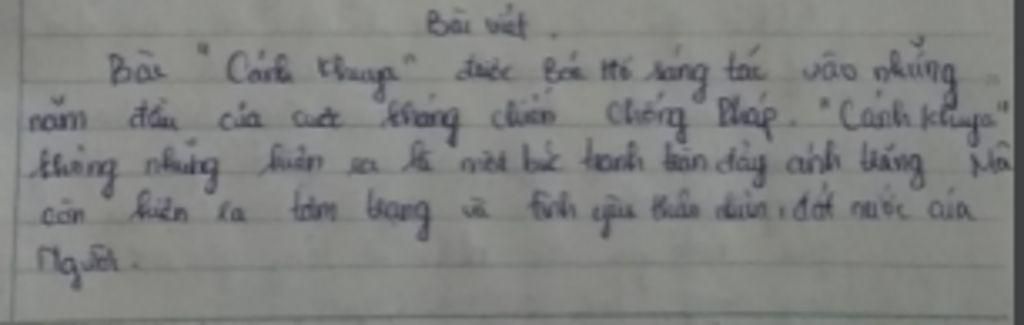 Bài viết.
Bài "Cảnh khuya" được Bác Hồ sáng tác vào những
năm đầu của cuộc kháng chiến chống Pháp. "Cảnh khuya"
không những hiện ra là một bức tranh tràn đầy ánh trăng Mà
còn hiện ra tâm trạng và tình yêu thiên nhiên, đất nước của
Người.